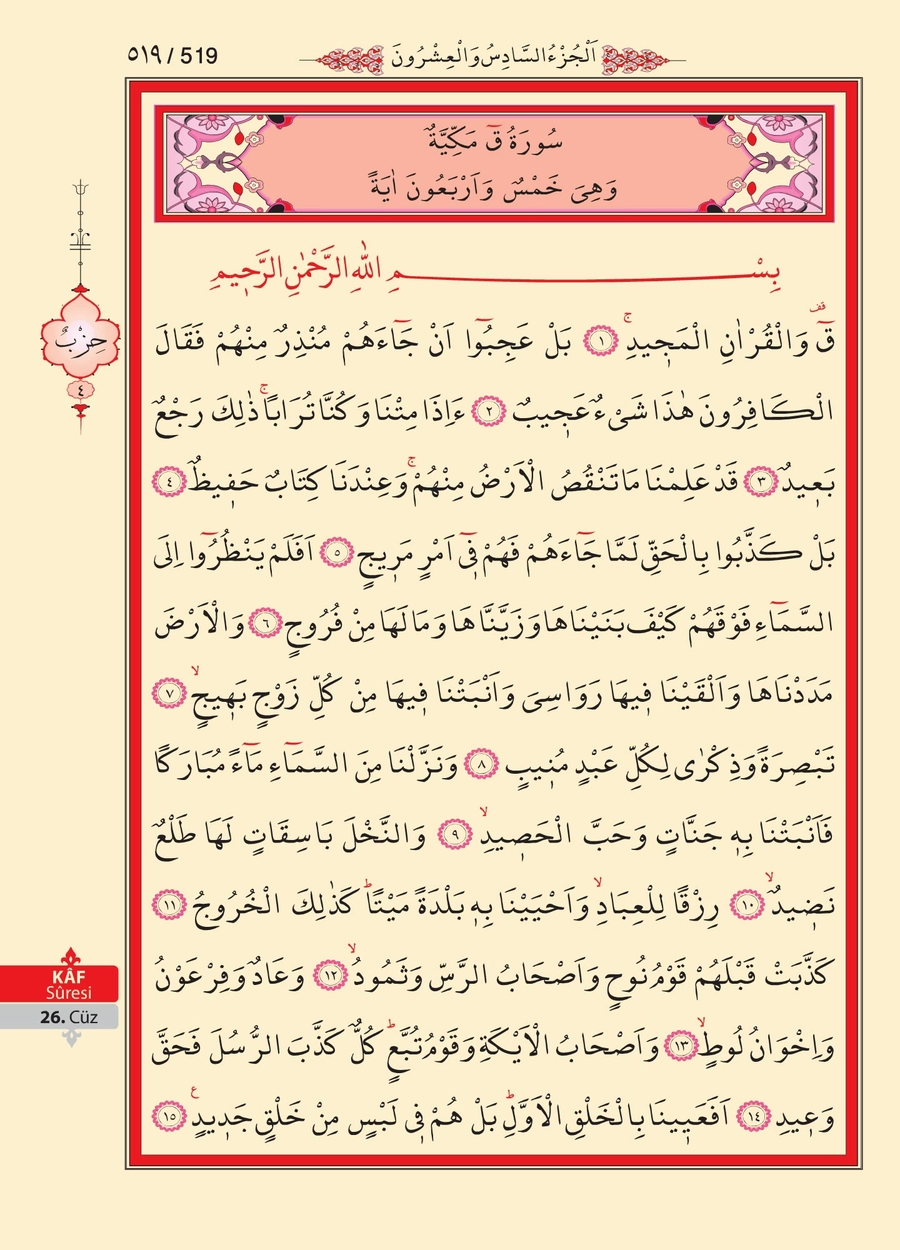 ٥١٩ / 519
اَلْجُزْءُ السَّادِسُ وَالْعِشْرُونَ
سُورَةُ قٓ مَكِّيَّةٌ
وَهِىَ خَمْسٌ وَاَرْبَعُونَ اٰيَةً
بِسْمِ اللّٰهِ الرَّحْمٰنِ الرَّحٖيمِ
قٓ وَالْقُرْاٰنِ الْمَجٖيدِۚ ﴿١﴾ بَلْ عَجِبُٓوا اَنْ جَٓاءَهُمْ مُنْذِرٌ مِنْهُمْ فَقَالَ
الْكَافِرُونَ هٰذَا شَىْءٌ عَجٖيبٌ ﴿٢﴾ ءَاِذَا مِتْنَا وَكُنَّا تُرَابًاۚ ذٰلِكَ رَجْعٌ
بَعٖيدٌ ﴿٣﴾ قَدْ عَلِمْنَا مَا تَنْقُصُ الْاَرْضُ مِنْهُمْۚ وَعِنْدَنَا كِتَابٌ حَفٖيظٌ ﴿٤﴾
بَلْ كَذَّبُوا بِالْحَقِّ لَمَّا جَٓاءَهُمْ فَهُمْ فٖٓى اَمْرٍ مَرٖيجٍ ﴿٥﴾ اَفَلَمْ يَنْظُرُٓوا اِلَى
السَّمَٓاءِ فَوْقَهُمْ كَيْفَ بَنَيْنَاهَا وَزَيَّنَّاهَا وَمَا لَهَا مِنْ فُرُوجٍ ﴿٦﴾ وَالْاَرْضَ
مَدَدْنَاهَا وَاَلْقَيْنَا فٖيهَا رَوَاسِىَ وَاَنْبَتْنَا فٖيهَا مِنْ كُلِّ زَوْجٍ بَهٖيجٍۙ ﴿٧﴾
تَبْصِرَةً وَذِكْرٰى لِكُلِّ عَبْدٍ مُنٖيبٍ ﴿٨﴾ وَنَزَّلْنَا مِنَ السَّمَٓاءِ مَٓاءً مُبَارَكًا
فَاَنْبَتْنَا بِهٖ جَنَّاتٍ وَحَبَّ الْحَصٖيدِۙ ﴿٩﴾ وَالنَّخْلَ بَاسِقَاتٍ لَهَا طَلْعٌ
نَضٖيدٌۙ ﴿١٠﴾ رِزْقًا لِلْعِبَادِۙ وَاَحْيَيْنَا بِهٖ بَلْدَةً مَيْتًاؕ كَذٰلِكَ الْخُرُوجُ ﴿١١﴾
كَذَّبَتْ قَبْلَهُمْ قَوْمُ نُوحٍ وَاَصْحَابُ الرَّسِّ وَثَمُودُۙ ﴿١٢﴾ وَعَادٌ وَفِرْعَوْنُ
وَاِخْوَانُ لُوطٍۙ ﴿١٣﴾ وَاَصْحَابُ الْاَيْكَةِ وَقَوْمُ تُبَّعٍؕ كُلٌّ كَذَّبَ الرُّسُلَ فَحَقَّ
وَعٖيدِ ﴿١٤﴾ اَفَعَيٖينَا بِالْخَلْقِ الْاَوَّلِؕ بَلْ هُمْ فٖى لَبْسٍ مِنْ خَلْقٍ جَدٖيدٍ ﴿١٥﴾
حِزْبٌ
٤
KÂF
Sûresi
26. Cüz